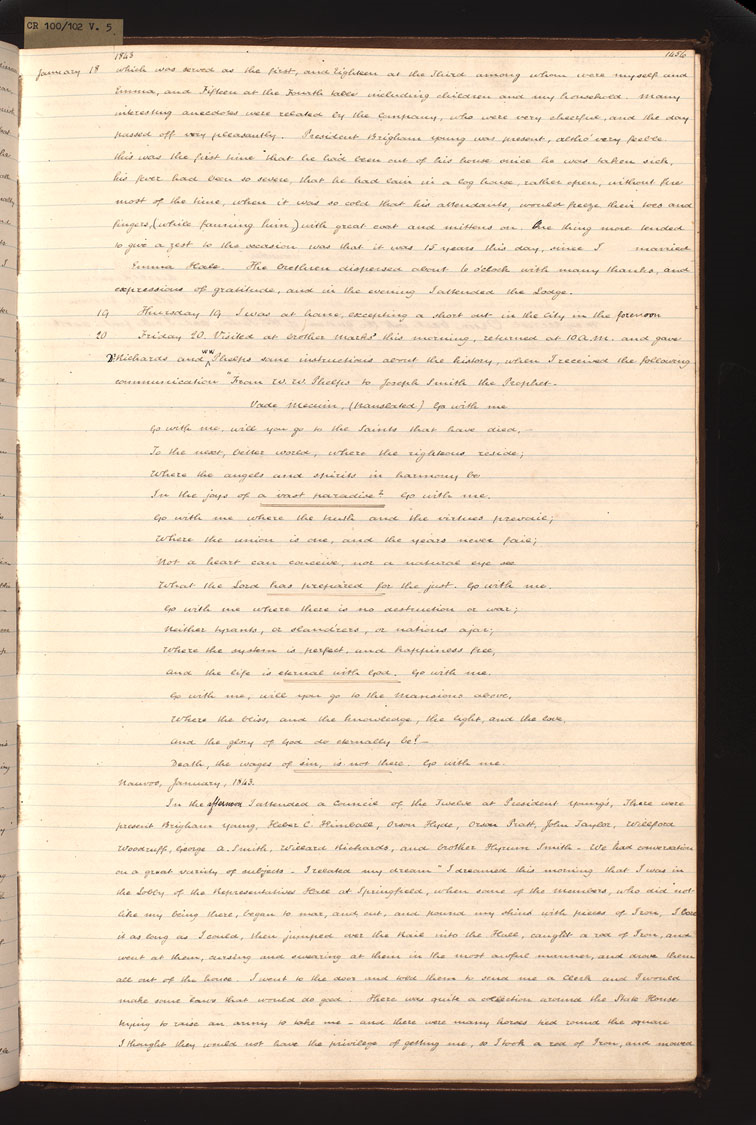 CR 100/102 V. 5
1843 1456
January 18 which was served as the first, and Eighteen at the Third among whom were myself and
Emma, and Fifteen at the Fourth table including children and my household. Many
interesting anecdotes were related by the Company, who were very cheerful, and the day
passed off very pleasantly. President Brigham Young was present, altho' very feeble.
this was the first time that he had been out of his house since he was taken sick,
his fever had been so severe, that he had lain in a log house, rather open, without fire
most of the time, when it was so cold that his attendants, would freeze their toes and
fingers, (while fanning him) with great coat and mittens on. One thing more tended
to give a zest to the occasion was that it was 15 years this day, since I married
Emma Hale. The brethren dispersed about 6 o'clock with many thanks, and
expressions of gratitude, and in the evening I attended the Lodge.
19 Thursday 19 I was at home, excepting a short out in the city in the forenoon
20 Friday 20. Visited at brother Marks' this morning, returned at 10 A.M. and gave
Richards and W W Phelps some instructions about the history, when I received the following
communication "From W. W. Phelps to Joseph Smith the Prophet-
Vade Mecum, (translated) Go with me
Go with me, will you go to the Saints that have died,-
To the next, better world, where the righteous reside;
Where the angels and spirits in harmony be
In the joys of a vast paradise? Go with me.
Go with me where the truth and the virtues prevail;
Where the union is one, and the years never fail;
Not a heart can conceive, nor a natural eye see
What the Lord has prepared for the just. Go with me.
Go with me where there is no destruction or war;
Neither tyrants, or sland'rers, or nations ajar;
Where the system is perfect, and happiness free,
And the life is eternal with God. Go with me.
Go with me, will you go to the Mansions above,
Where the bliss, and the knowledge, the light, and the love,
And the glory of God do eternally be?-
Death, the wages of sin, is not there. Go with me.
Nauvoo, January, 1843.
In the afternoon I attended a Council of the Twelve at President Young's, There were
present Brigham Young, Heber C. Kimball, Orson Hyde, Orson Pratt, John Taylor, Wilford
Woodruff, George A. Smith, Willard Richards, and brother Hyrum Smith - We had conversation
on a great variety of subjects - I related my dream - "I dreamed this morning that I was in
the Lobby of the Representatives Hall at Springfield, when some of the members, who did not
like my being there, began to mar, and cut, and pound my shins with pieces of Iron, I bore
it as long as I could, then jumped over the Rail into the Hall, caught a rod of Iron, and
went at them, cursing and swearing at them in the most awful manner, and drove them
all out of the house. I went to the door and told them to send me a Clerk and I would
make some laws that would do good. There was quite a collection around the State House
trying to raise an army to take me - and there were many horses tied round the square
I thought they would not have the privilege of getting me, so I took a rod of Iron, and mowed